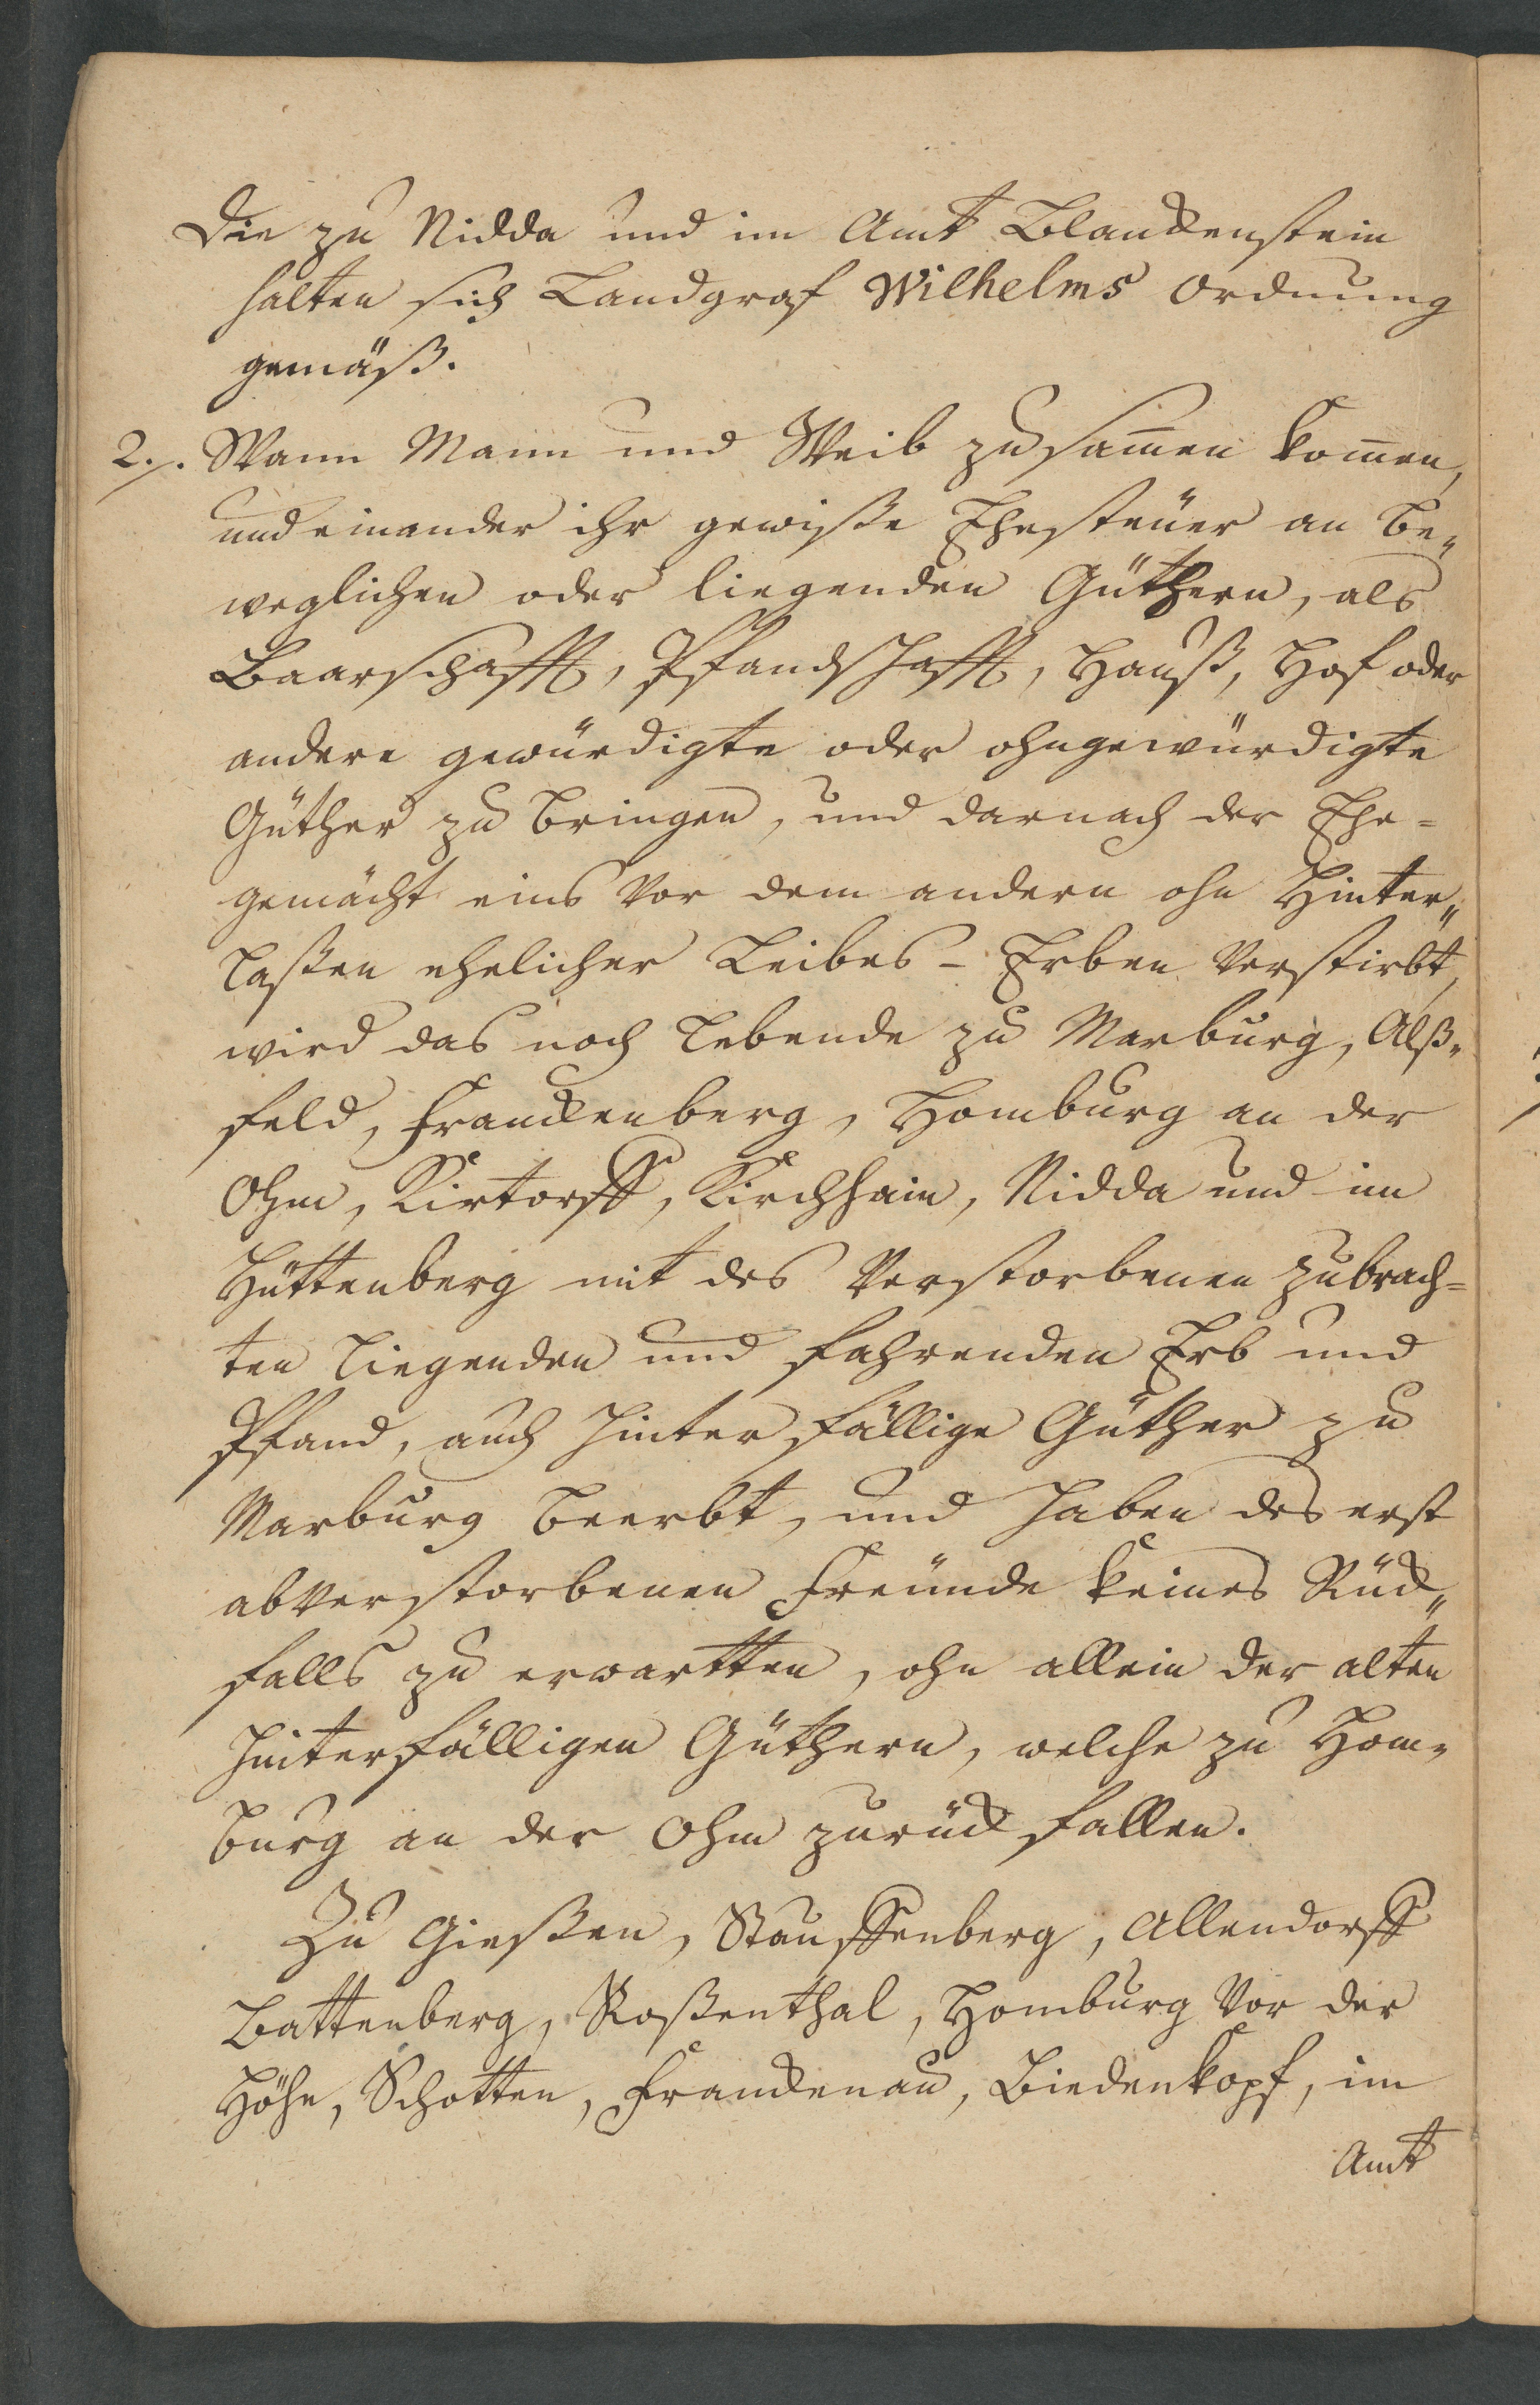 Die zu Nidda und im Amt Blanckenstein
halten sich Landgraf Wilhelms Ordnung
gemäß.
2./. Wann Mann und Weib zusam̄en kom̄en,
und einander ihr gewiße Ehesteüer an be„
weglichen oder liegenden Güthern, als
Baarschafft, Pfandschafft, Hauß, Hof oder
andere gewürdigte oder ohngewürdigte
Güther zu bringen, und darnach der Ehe=
gemächt eins vor dem andern ohn Hinter„
laßen ehelicher Leibes-Erben verstirbt,
wird das noch lebende zu Marburg, Alß„
feld, Franckenberg, Homburg an der
Ohm, Kirtorff, Kirchhain, Nidda und im
Hüttenberg mit des Verstorbenen zubrach=
ten liegenden und fahrenden Erb und
Pfand, auch hinterfällige Güther zu
Marburg beerbt, und haben des erst
abverstorbenen Freünde keines Rück„
falls zu erwartten, ohn allein der alten
hinterfälligen Güthern, welche zu Hom„
burg an der Ohm zurück fallen.
Zu Gießen, Stauffenberg, Allendorff
Battenberg, Roßenthal, Homburg vor der
Höhe, Schotten, Franckenau, Biedenkopf, im
Amt